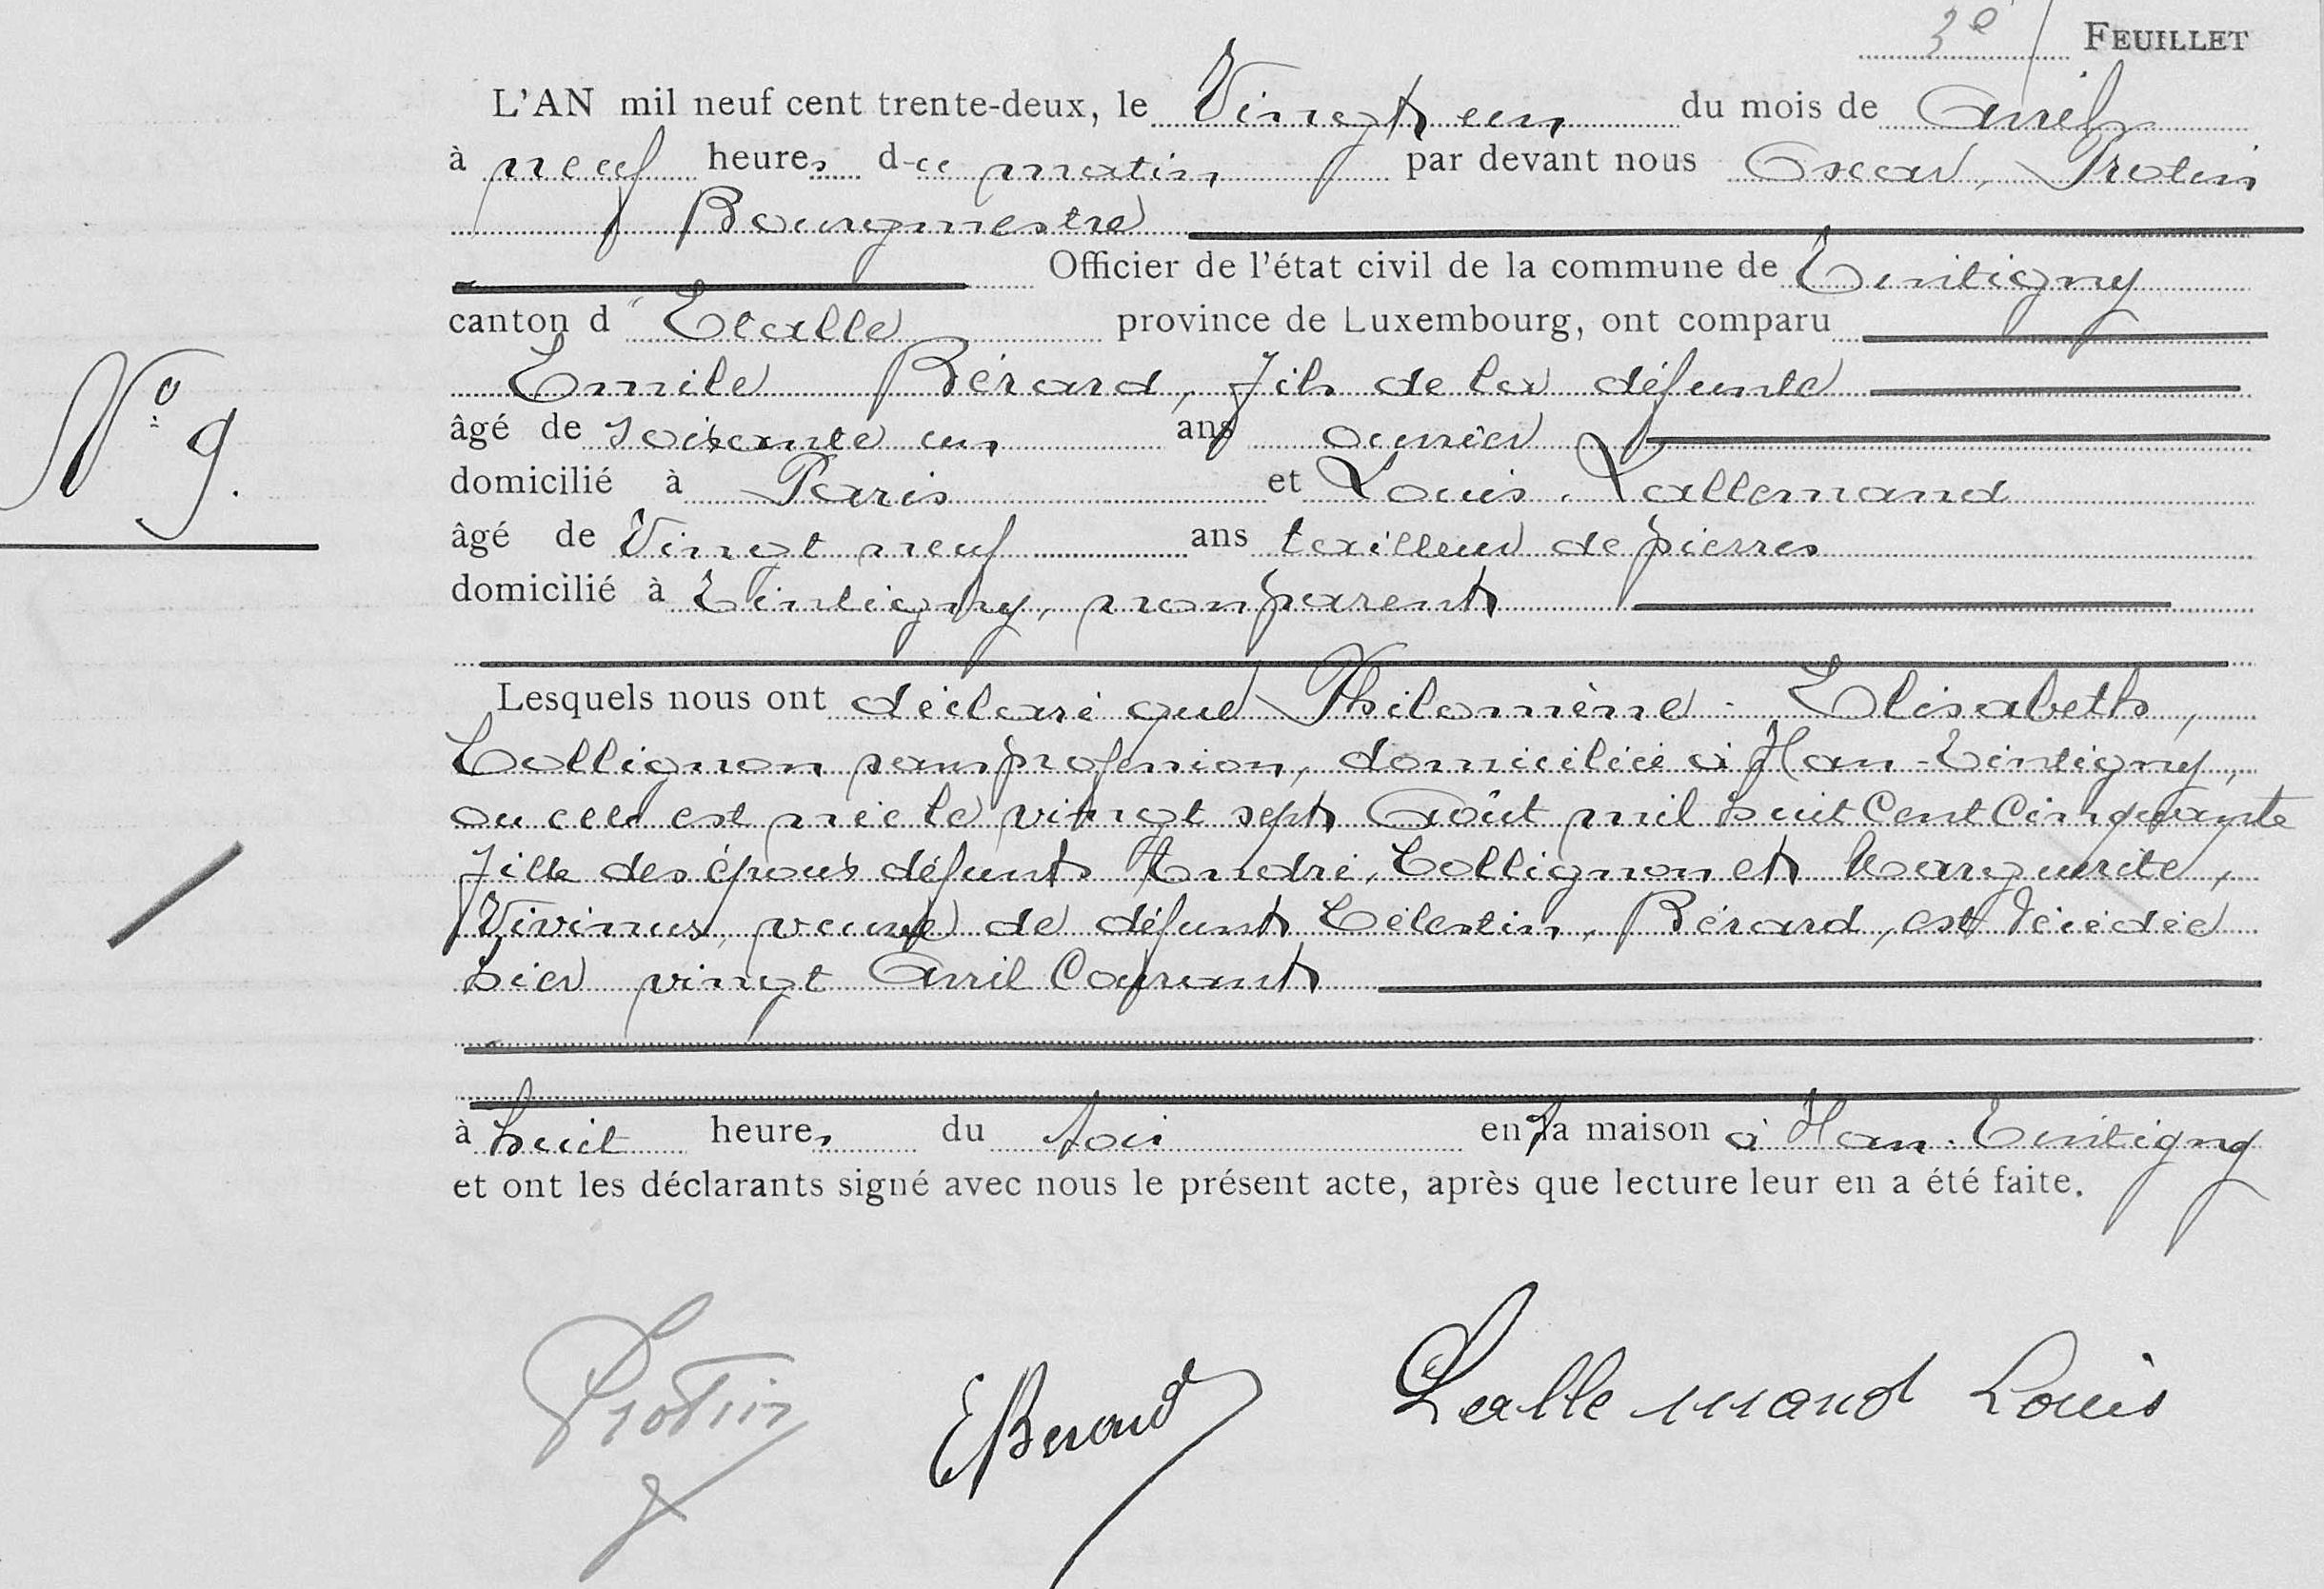 3e FEUILLET
L'AN mil neuf cent trente-deux, le Vingt un du mois de Avril
à neuf heures du matin par devant nous Oscar, Protin
Bourgmestre
Officier de l'état civil de la commune de Tintigny
canton d'Etalle province de Luxembourg, ont comparu
Emile Bérard, fils de la défunte
âgé de soixante un ans ouvrier
domicilié à Paris et Louis, Lallemand
âgé de Vingt neuf ans tailleur de pierres
N° 9.
domicilié à Tintigny, non parent
Lesquels nous ont déclaré que Philomène - Elisabeth,
Collignon sans profession, domiciliée à Han-Tintigny,
ou elle est née le vingt sept Août mil huit Cent Cinquante
fille des époux défunts André, Collignon et Marguerite,
Vivinus, veuve de défunt Célestin, Bérard, est décédée
hier vingt Avril Courant
à huit heures du soir en sa maison à Han-Tintigny
et ont les déclarants signé avec nous le présent acte, après que lecture leur en a été faite.
Protin EBerard Lallemand Louis